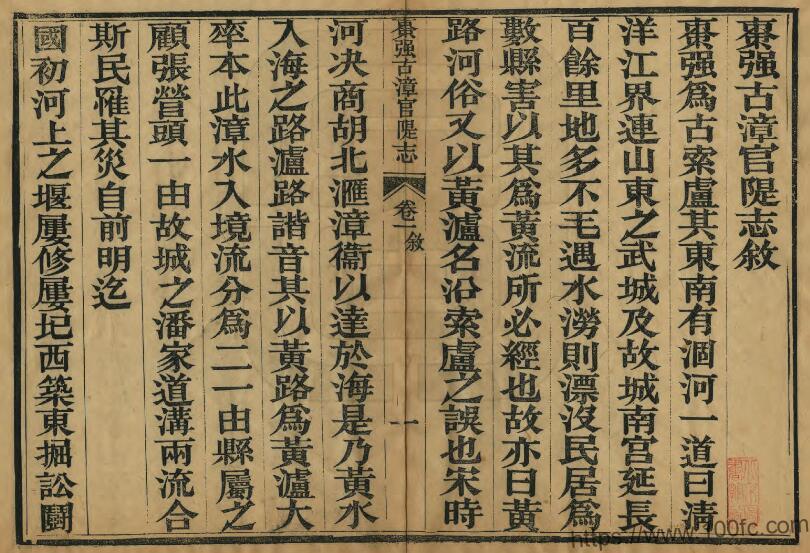 棗强古漳官隄志敘
棗强爲古索盧其東南有涸河一道曰清
洋江界連山東之武城及故城南宫延長
百餘里地多不毛遇水澇則漂沒民居爲
數縣害以其爲黃流所必經也故亦曰黃
路河俗又以黃瀘名沿索盧之誤也宋時
棗强古漳官隄志
卷一
敘
一
河决商胡北滙漳衞以達於海是乃黃水
入海之路瀘路諧音其以黃路爲黃瀘大
率本此漳水入境流分爲二一由縣屬之
顧張營頭一由故城之潘家道溝兩流合
斯民罹其災自前明迄
國初河上之堰屢修屢圮西築東掘訟鬭
https://www.700fc.com